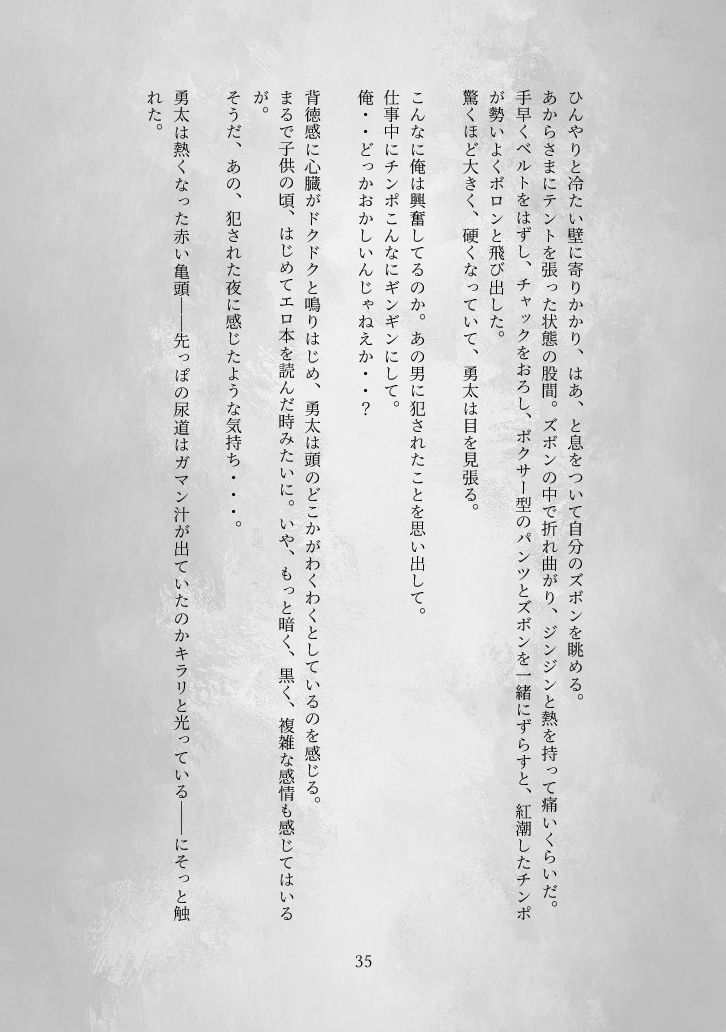 ひんやりと冷たい壁に寄りかかり、はあ、と息をついて自分のズボンを眺める。
あからさまにテントを張った状態の股間。ズボンの中で折れ曲がり、ジンジンと熱を持って痛いくらいだ。
手早くベルトをはずし、チャックをおろし、ボクサー型のパンツとズボンを一緒にずらすと、紅潮したチンポ
が勢いよくボロンと飛び出した。
驚くほど大きく、硬くなっていて、勇太は目を見張る。
こんなに俺は興奮してるのか。あの男に犯されたことを思い出して。
仕事中にチンポこんなにギンギンにして。
俺・・どっかおかしいんじゃねえか・・?
背徳感に心臓がドクドクと鳴りはじめ、勇太は頭のどこかがわくわくとしているのを感じる。
まるで子供の頃、はじめてエロ本を読んだ時みたいに。いや、もっと暗く、黒く、複雑な感情も感じてはいる
が。
そうだ、あの、犯された夜に感じたような気持ち・・・。
勇太は熱くなった赤い亀頭――先っぽの尿道はガマン汁が出ていたのかキラリと光っている――にそっと触
れた。
35